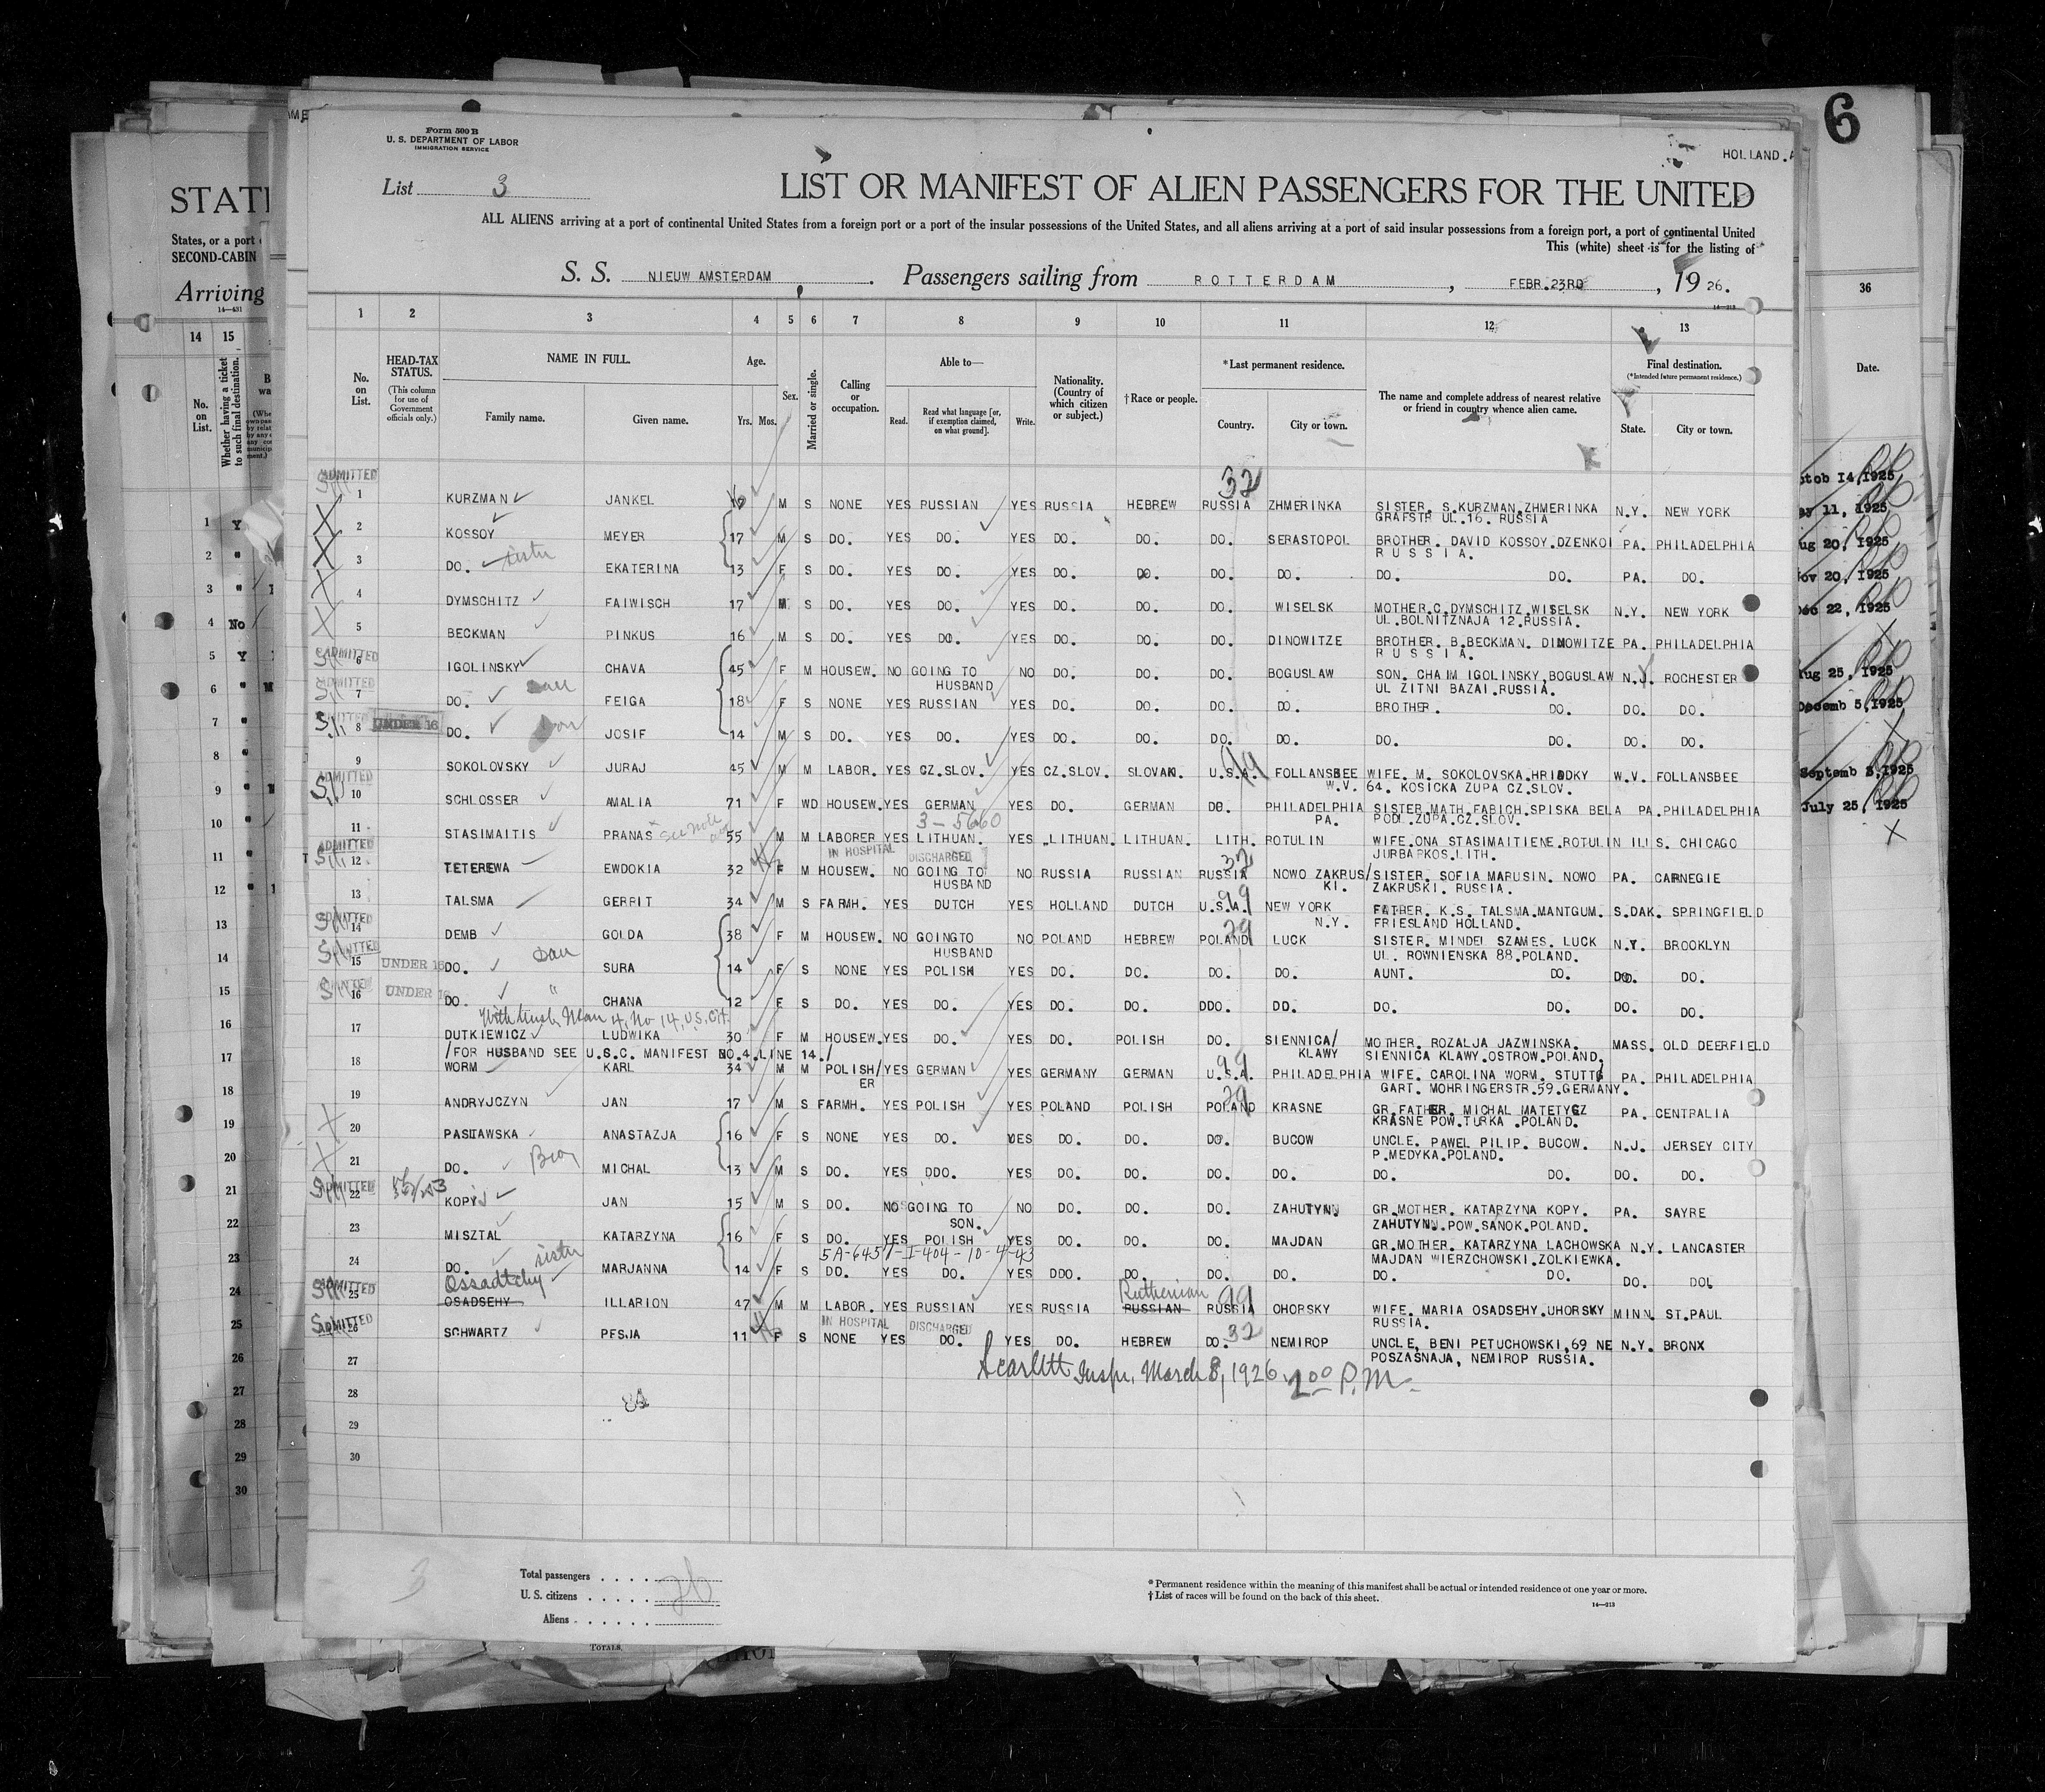 6
Form 500 B
U. S. DEPARTMENT OF LABOR
IMMIGRATION SERVICE
HOLLAND.A
List 3
LIST OR MANIFEST OF ALIEN PASSENGERS FOR THE UNITED
ALL ALIENS arriving at a port of continental United States from a foreign port or a port of the insular possessions of the United States, and all aliens arriving at a port of said insular possessions from a foreign port, a port of continental United
This (white) sheet is for the listing of
S. S. NIEUW AMSTERDAM. Passengers sailing from ROTTERDAM, FEBR.23RD, 19 26.
1 2 3 4 5 6 7 8 9 10 11 12 13
No. on List.
HEAD-TAX STATUS.
(This column for use of Government officials only.)
NAME IN FULL.
Family name. Given name.
Age.
Yrs. Mos.
Sex.
Married or single.
Calling or occupation.
Able to—
Read. Read what language [or, if exemption claimed, on what ground]. Write.
Nationality. (Country of which citizen or subject.)
†Race or people.
*Last permanent residence.
Country. City or town.
The name and complete address of nearest relative or friend in country whence alien came.
Final destination.
(*Intended future permanent residence.)
State. City or town.
ADMITTED 32
1 KURZMAN JANKEL M S NONE YES RUSSIAN YES RUSSIA HEBREW RUSSIA ZHMERINKA SISTER. S.KURZMAN.ZHMERINKA N.Y. NEW YORK
GRAFSTR UL.16. RUSSIA
2 KOSSOY MEYER 17 M S DO. YES DO. YES DO. DO. DO. SERASTOPOL BROTHER. DAVID KOSSOY.DZENKOI PA. PHILADELPHIA
RUSSIA.
3 DO. sister EKATERINA 13 F S DO. YES DO. YES DO. DO. DO. DO. DO. DO. PA. DO.
4 DYMSCHITZ FAIWISCH 17 M S DO. YES DO. YES DO. DO. DO. WISELSK MOTHER.C.DYMSCHITZ.WISELSK N.Y. NEW YORK
UL.BOLNITZNAJA 12.RUSSIA.
5 BECKMAN PINKUS 16 M S DO. YES DO. YES DO. DO. DO. DINOWITZE BROTHER. B.BECKMAN. DINOWITZE PA. PHILADELPHIA
RUSSIA.
ADMITTED
6 IGOLINSKY CHAVA 45 F M HOUSEW. NO GOING TO NO DO. DO. DO. BOGUSLAW SON. CHAIM IGOLINSKY.BOGUSLAW N.Y. ROCHESTER
HUSBAND UL ZITNI BAZAI.RUSSIA.
7 DO. dau FEIGA 18 F S NONE YES RUSSIAN YES DO. DO. DO. DO. BROTHER. DO. DO. DO.
8 UNDER 16 DO. JOSIF 14 M S DO. YES DO. YES DO. DO. DO. DO. DO. DO. DO. DO.
9 SOKOLOVSKY JURAJ 45 M M LABOR. YES CZ.SLOV. YES CZ.SLOV. SLOVAK. U.S.A. FOLLANSBEE WIFE. M. SOKOLOVSKA.HRIADKY W.V. FOLLANSBEE
W.V. 64. KOSICKA ZUPA CZ.SLOV.
ADMITTED
10 SCHLOSSER AMALIA 71 F WD HOUSEW. YES GERMAN YES DO. GERMAN DO. PHILADELPHIA SISTER MATH.FABICH.SPISKA BELA PA. PHILADELPHIA
PA. PODL.ZUPA.CZ.SLOV.
3-5660
11 STASIMAITIS PRANAS See note 55 M M LABORER YES LITHUAN. YES LITHUAN. LITHUAN. LITH. ROTULIN WIFE.ONA STASIMAITIENE.ROTULIN ILLS. CHICAGO
JURBARKOS.LITH.
ADMITTED IN HOSPITAL DISCHARGED 32
12 TETEREWA EWDOKIA 32 F M HOUSEW. NO GOING TO NO RUSSIA RUSSIAN RUSSIA NOWO ZAKRUS/ SISTER. SOFIA MARUSIN. NOWO PA. CARNEGIE
HUSBAND KI. ZAKRUSKI. RUSSIA.
99
13 TALSMA GERRIT 34 M S FARMH. YES DUTCH YES HOLLAND DUTCH U.S.A. NEW YORK FATHER. K.S. TALSMA.MANTGUM. S.DAK. SPRINGFIELD
N.Y. FRIESLAND HOLLAND.
ADMITTED 29
14 DEMB GOLDA 38 F M HOUSEW. NO GOINGTO NO POLAND HEBREW POLAND LUCK SISTER. MINDEL SZAMES. LUCK N.Y. BROOKLYN
HUSBAND UL. ROWNIENSKA 88.POLAND.
15 UNDER 16 DO. dau SURA 14 F S NONE YES POLISH YES DO. DO. DO. DO. AUNT. DO. DO. DO.
16 UNDER 16 DO. " CHANA 12 F S DO. YES DO. YES DO. DO. DDO. DO. DO. DO. DO. DO.
With husb. Man 4, No 14, U.S. Cit.
17 DUTKIEWICZ LUDWIKA 30 F M HOUSEW. YES DO. YES DO. POLISH DO. SIENNICA/ MOTHER. ROZALJA JAZWINSKA. MASS. OLD DEERFIELD
/FOR HUSBAND SEE U.S.C. MANIFEST NO.4.LINE 14./ KLAWY SIENNICA KLAWY.OSTROW.POLAND.
99
18 WORM KARL 34 M M POLISH/ YES GERMAN YES GERMANY GERMAN U.S.A. PHILADELPHIA WIFE. CAROLINA WORM. STUTT/ PA. PHILADELPHIA
ER GART. MOHRINGERSTR.59.GERMANY.
29
19 ANDRYJCZYN JAN 17 M S FARMH. YES POLISH YES POLAND POLISH POLAND KRASNE GR.FATHER. MICHAL MATETYCZ PA. CENTRALIA
KRASNE POW.TURKA .POLAND.
20 PASLAWSKA ANASTAZJA 16 F S NONE YES DO. YES DO. DO. DO. BUCOW UNCLE. PAWEL PILIP. BUCOW. N.J. JERSEY CITY
P.MEDYKA.POLAND.
21 DO. Bro MICHAL 13 M S DO. YES DDO. YES DO. DO. DO. DO. DO. DO. DO. DO.
ADMITTED
22 KOPYS JAN 15 M S DO. NO GOING TO NO DO. DO. DO. ZAHUTYNN GR.MOTHER. KATARZYNA KOPY. PA. SAYRE
SON. ZAHUTYNN.POW.SANOK.POLAND.
23 MISZTAL KATARZYNA 16 F S DO. YES POLISH YES DO. DO. DO. MAJDAN GR.MOTHER. KATARZYNA LACHOWSKA N.Y. LANCASTER
MAJDAN WIERZCHOWSKI.ZOLKIEWKA.
24 DO. sister MARJANNA 14 F S DO. YES DO. YES DDO. DO. DO. DO. DO. DO. DO. DO.
ADMITTED Ossadtchy Ruthenian 99
25 OSADSEHY ILLARION 47 M M LABOR. YES RUSSIAN YES RUSSIA RUSSIAN RUSSIA OHORSKY WIFE. MARIA OSADSEHY.UHORSKY MINN. ST.PAUL
RUSSIA.
ADMITTED IN HOSPITAL DISCHARGED 32
26 SCHWARTZ PESJA 11 F S NONE YES DO. YES DO. HEBREW DO. NEMIROP UNCLE. BENI PETUCHOWSKI,69 NE N.Y. BRONX
POSZASNAJA, NEMIROP RUSSIA.
27 Scarlett Inspr. March 8, 1926. 2 00 P.M.
28
29
30
3
Total passengers 26
U. S. citizens
Aliens
*Permanent residence within the meaning of this manifest shall be actual or intended residence of one year or more.
†List of races will be found on the back of this sheet.
14—213
STATE
States, or a port
SECOND-CABIN
Arriving
14—431
14 15
No. on List.
Whether having a ticket to such final destination.
36
Date.
Aug 25, 1925
Decemb 5, 1925
Septemb 3, 1925
July 25, 1925
TOTALS